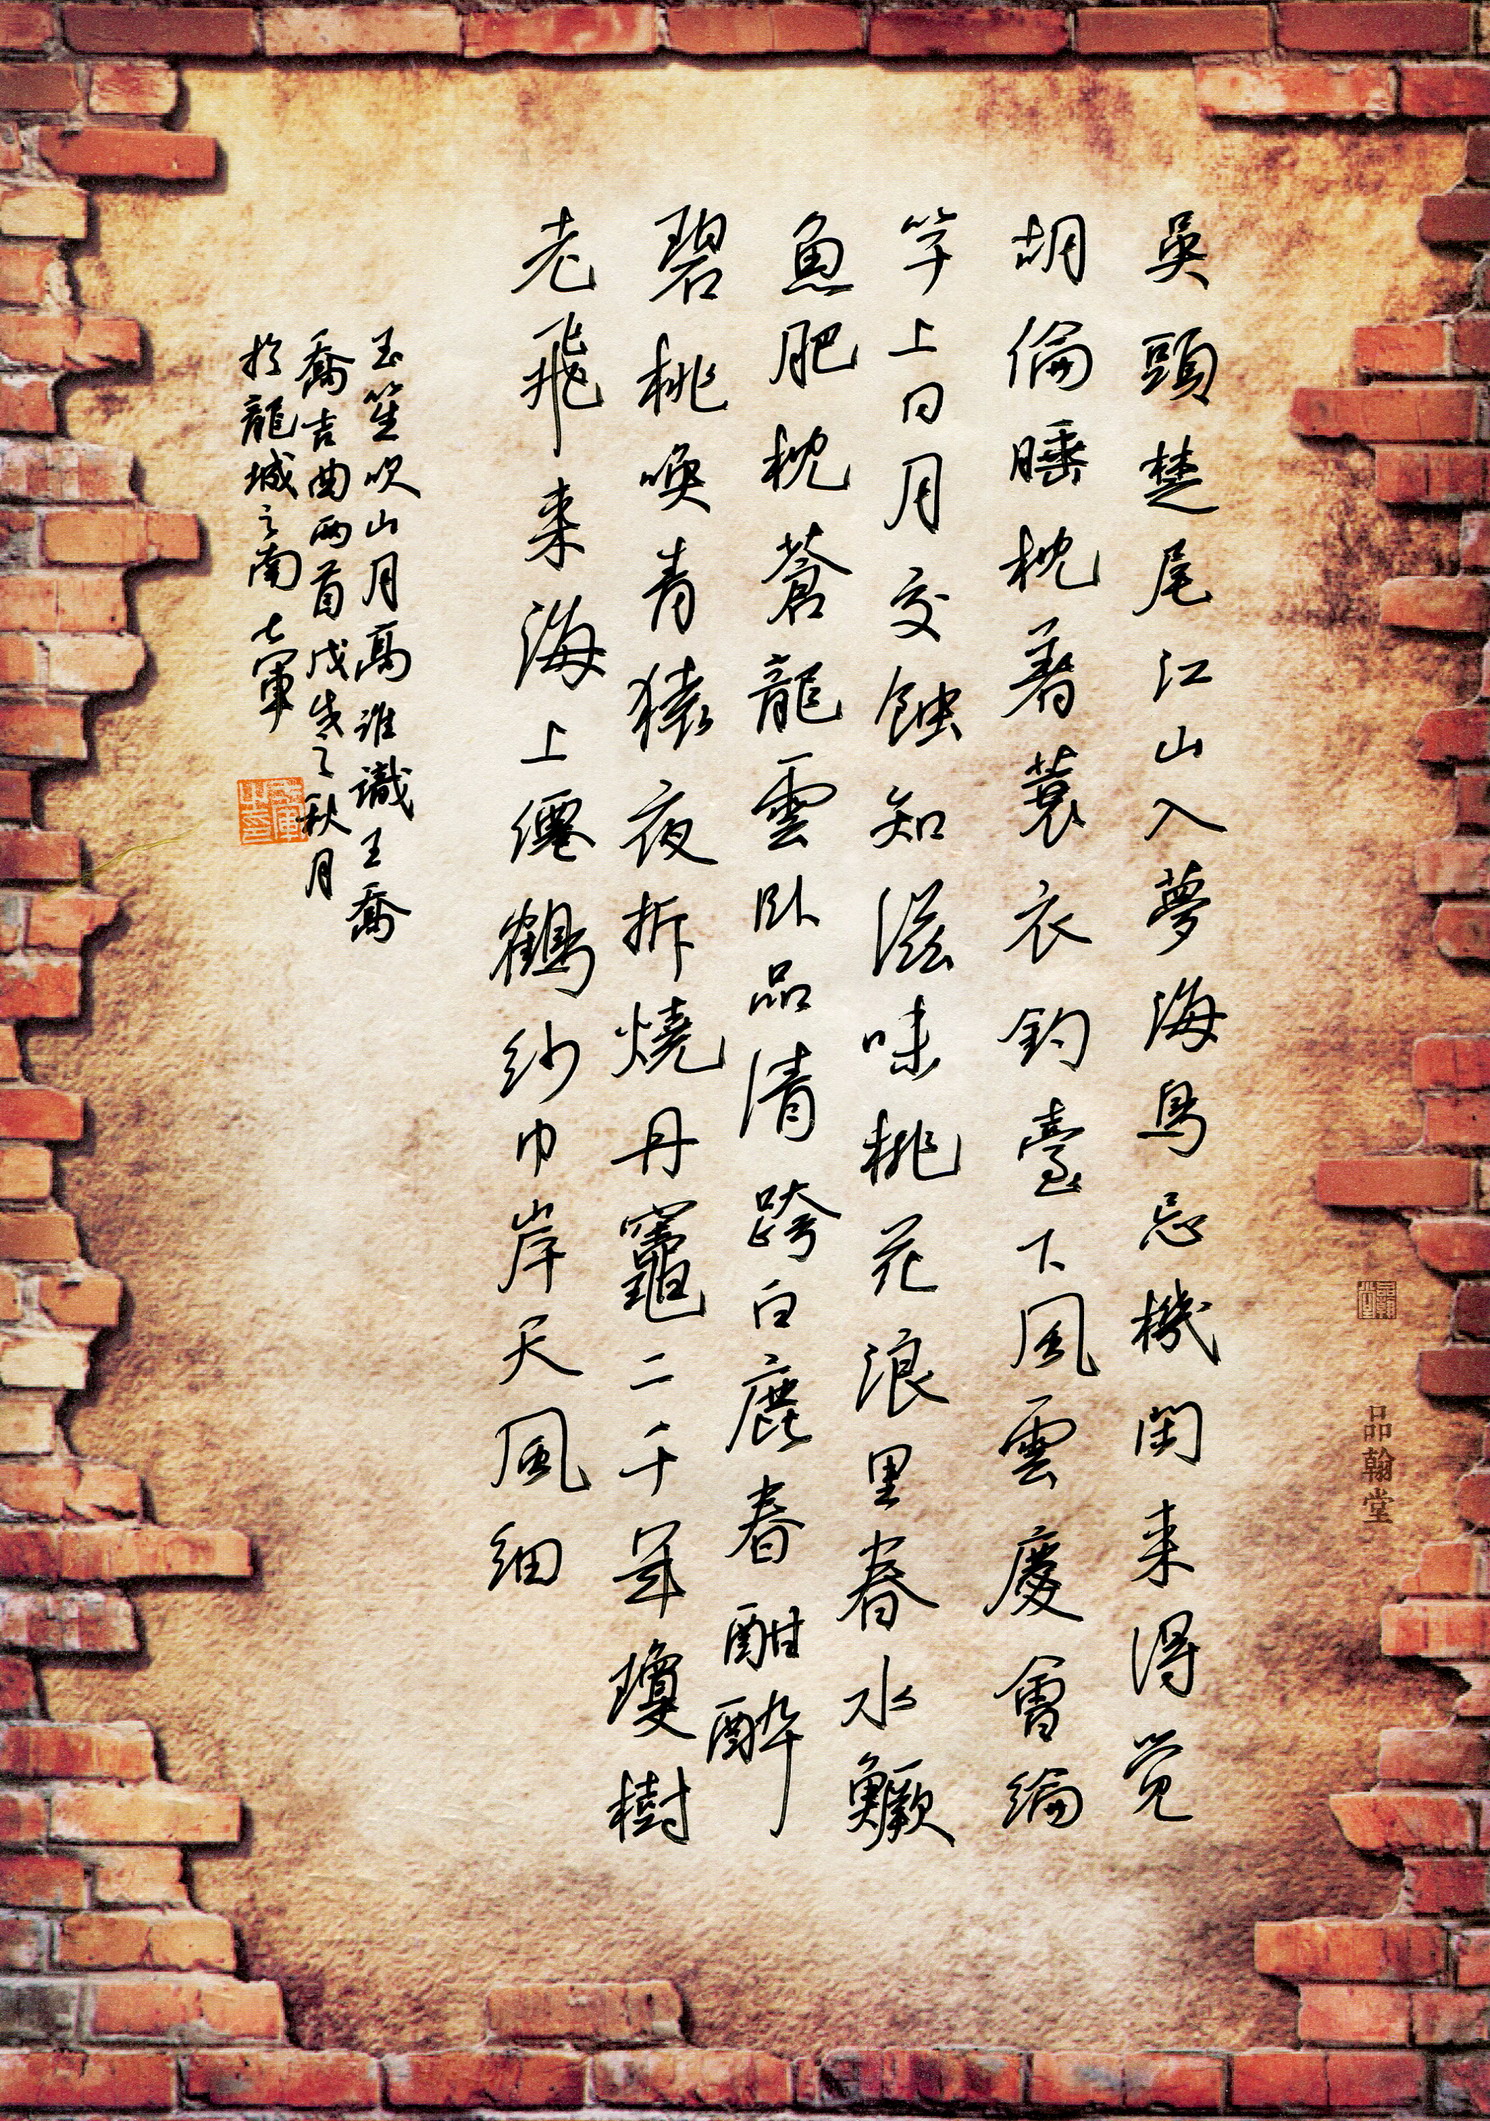 吳頭楚尾江山入夢海鳥忘機閑来得觉
胡倫睡枕著蓑衣釣臺下風雲慶會綸
竿上日月交蝕知滋味桃花浪里春水鱖
魚肥枕蒼龍雲卧品清跨白鹿春酣醉
碧桃喚青猿夜拆燒丹竈二千年瓊樹
老飛来海上僊鶴紗巾岸天風细
玉笙吹山月高谁識王喬
喬吉曲两首戊戌之秋月
於龍城之南七軍
品翰堂